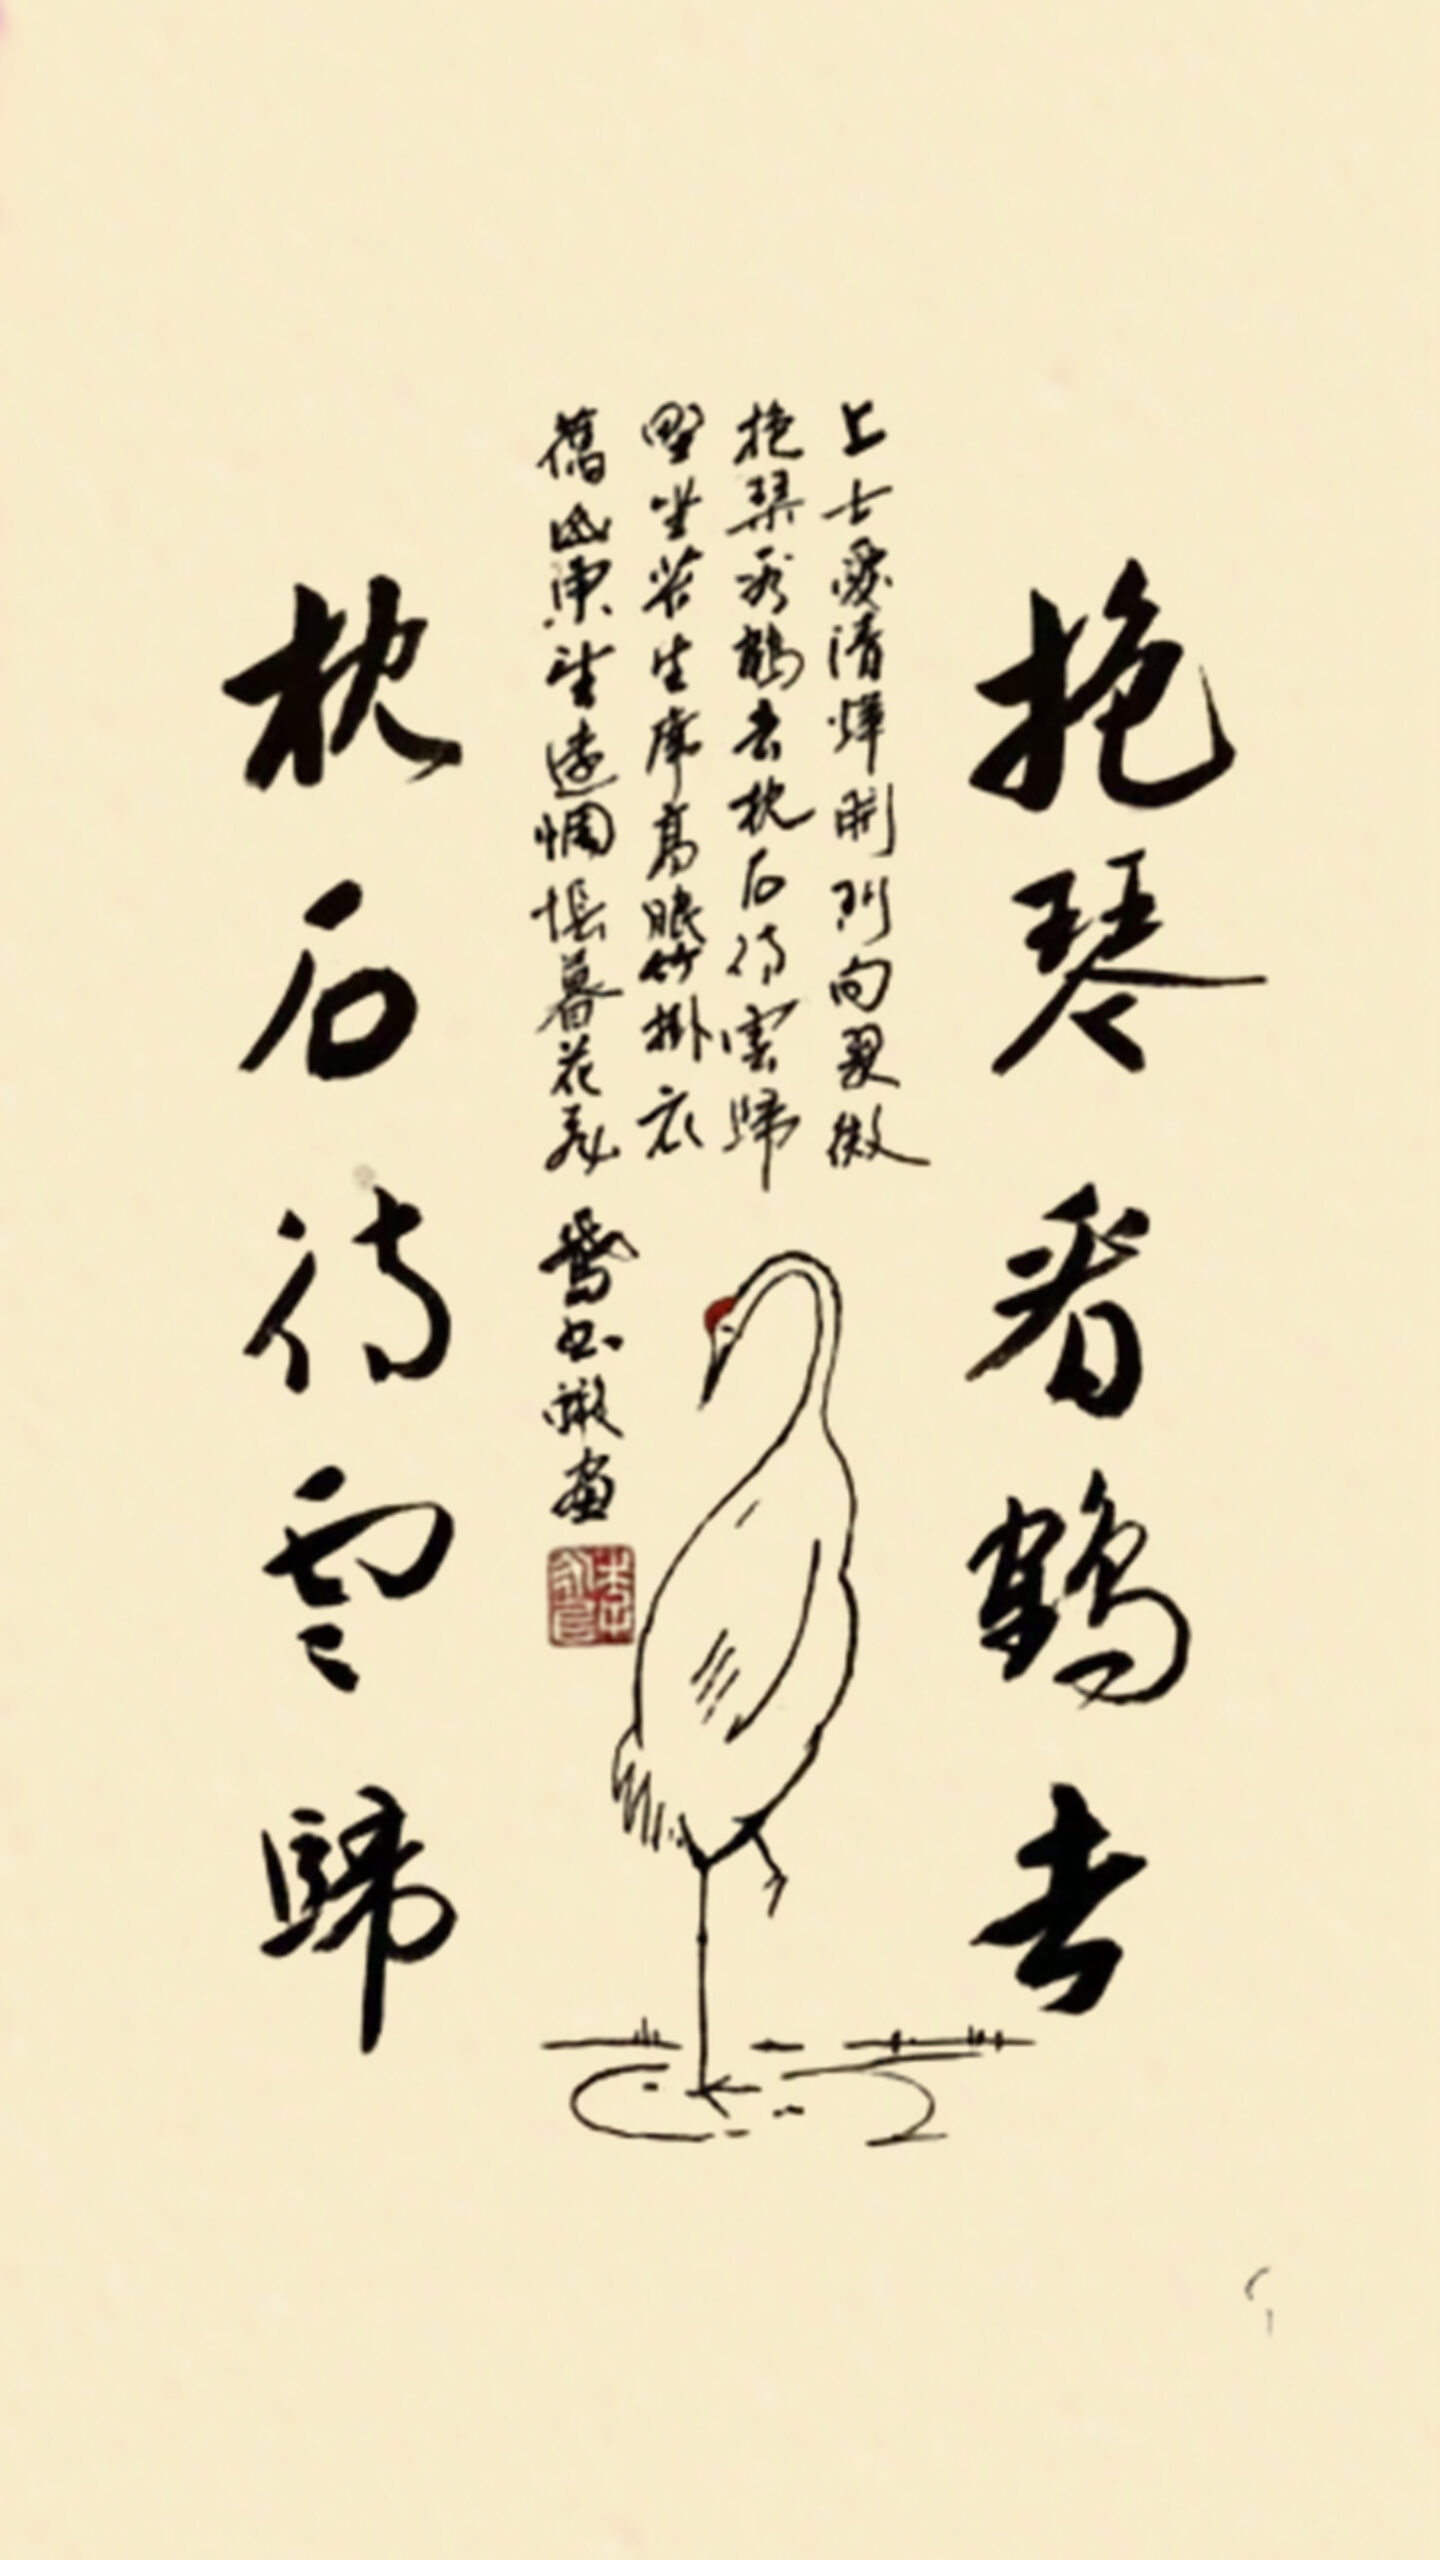 抱琴看鹤去
上士愛清輝開門向翠微
抱琴看鶴去枕石待雲歸
野坐苔生席高眠竹掛衣
舊山東望遠惆悵暮花飛
書畫
枕石待雲歸